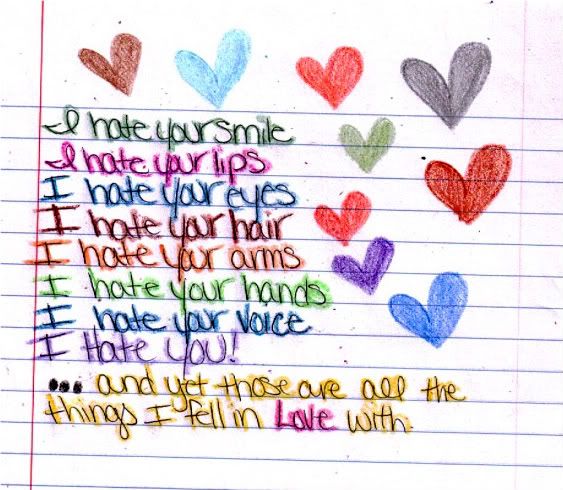 I hate your smile
I hate your lips
I hate your eyes
I hate your hair
I hate your arms
I hate your hands
I hate your voice
I HATE YOU!
... and yet those are all the
things I fell in Love with